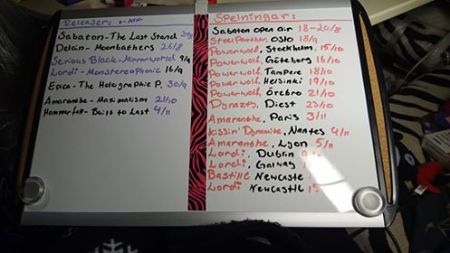 Releaser:
Sabaton - The Last Stand 19/8
Delain - Moonbathers 26/8
Serious Black - Mirrorworld 9/9
Lordi - Monstereophonic 16/9
Epica - The Holographic P. 30/9
Amaranthe - Maximalism 21/10
Hammerfall - Built to Last 4/11
Spelningar:
Sabaton open air 18-20/8
Steel Panther, Oslo 18/9
Powerwolf, Stockholm, 15/10
Powerwolf, Göteborg 16/10
Powerwolf, Tampere 18/10
Powerwolf, Helsinki 19/10
Powerwolf, Örebro 21/10
Dynazty, Diest 23/10
Amaranthe, Paris 3/11
Kissin' Dynamite, Nantes 4/11
Amaranthe, Lyon 5/11
Lordi, Dublin
Lordi, Galway
Bastille Newcastle
Lordi Newcastle